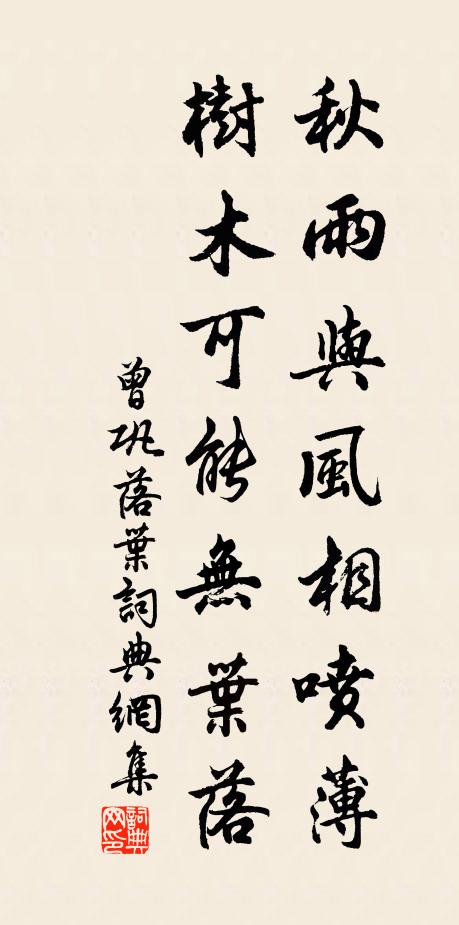 秋雨與風相噴薄
樹木可能無葉落
曾巩落葉詞典網集
詞典
网印